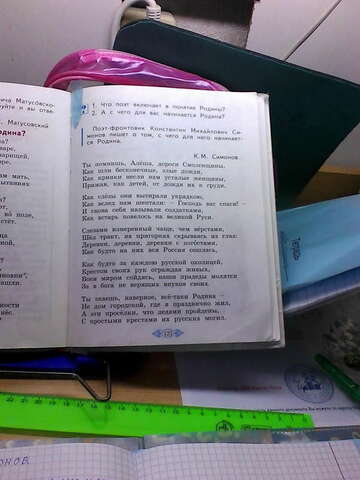 ича Матусовско-
руйте и вы отве-
Матусовский
одина?
1. Что поэт включает в понятие Родины?
2. А с чего для вас начинается Родина?
Поэт-фронтовик Константин Михайлович Си-
монов пишет о том, с чего для него начинает-
ся Родина.
К.М. Симонов
Ты помнишь, Алёша, дороги Смоленщины,
Как шли бесконечные, злые дожди,
Как кринки несли нам усталые женщины,
Прижав, как детей, от дождя их к груди,
Как слёзы они вытирали украдкою,
Как вслед нам шептали: — Господь вас спаси! —
И снова себя называли солдатками,
Как встарь повелось на великой Руси.
Слезами измеренный чаще, чем вёрстами,
Шёл тракт, на пригорках скрываясь из глаз:
Деревни, деревни, деревни с погостами,
Как будто на них вся Россия сошлась,
Как будто за каждою русской околицей,
Крестом своих рук ограждая живых,
Всем миром сойдясь, наши прадеды молятся
За в бога не верящих внуков своих.
Ты знаешь, наверное, всё-таки Родина —
Не дом городской, где я празднично жил,
А эти просёлки, что дедами пройдены,
С простыми крестами их русских могил.